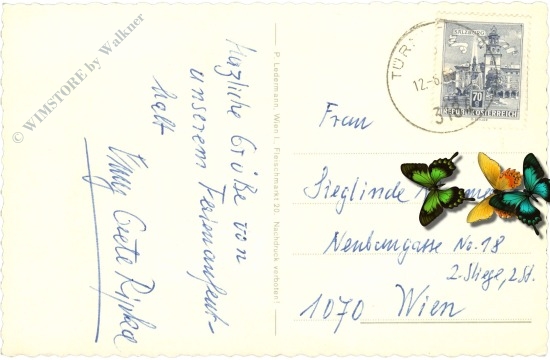 Herzliche Grüße von
unserem Ferienaufent-
halt
Grete
P. Ledermann, Wien I., Fleischmarkt 20. Nachdruck verboten!
© WIMSTORE by Walkner
SALZBURG
70
REPUBLIK ÖSTERREICH
TÜR
12.-6
Frau
Sieglinde
Neubaugasse No. 18
2. Stiege, 2 St.
1070 Wien